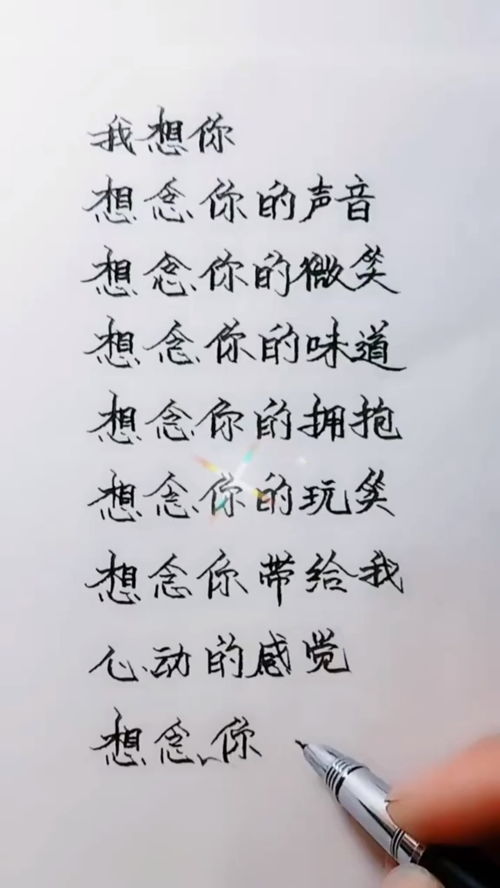 我想你
想念你的声音
想念你的微笑
想念你的味道
想念你的拥抱
想念你的玩笑
想念你带给我
心动的感觉
想念你